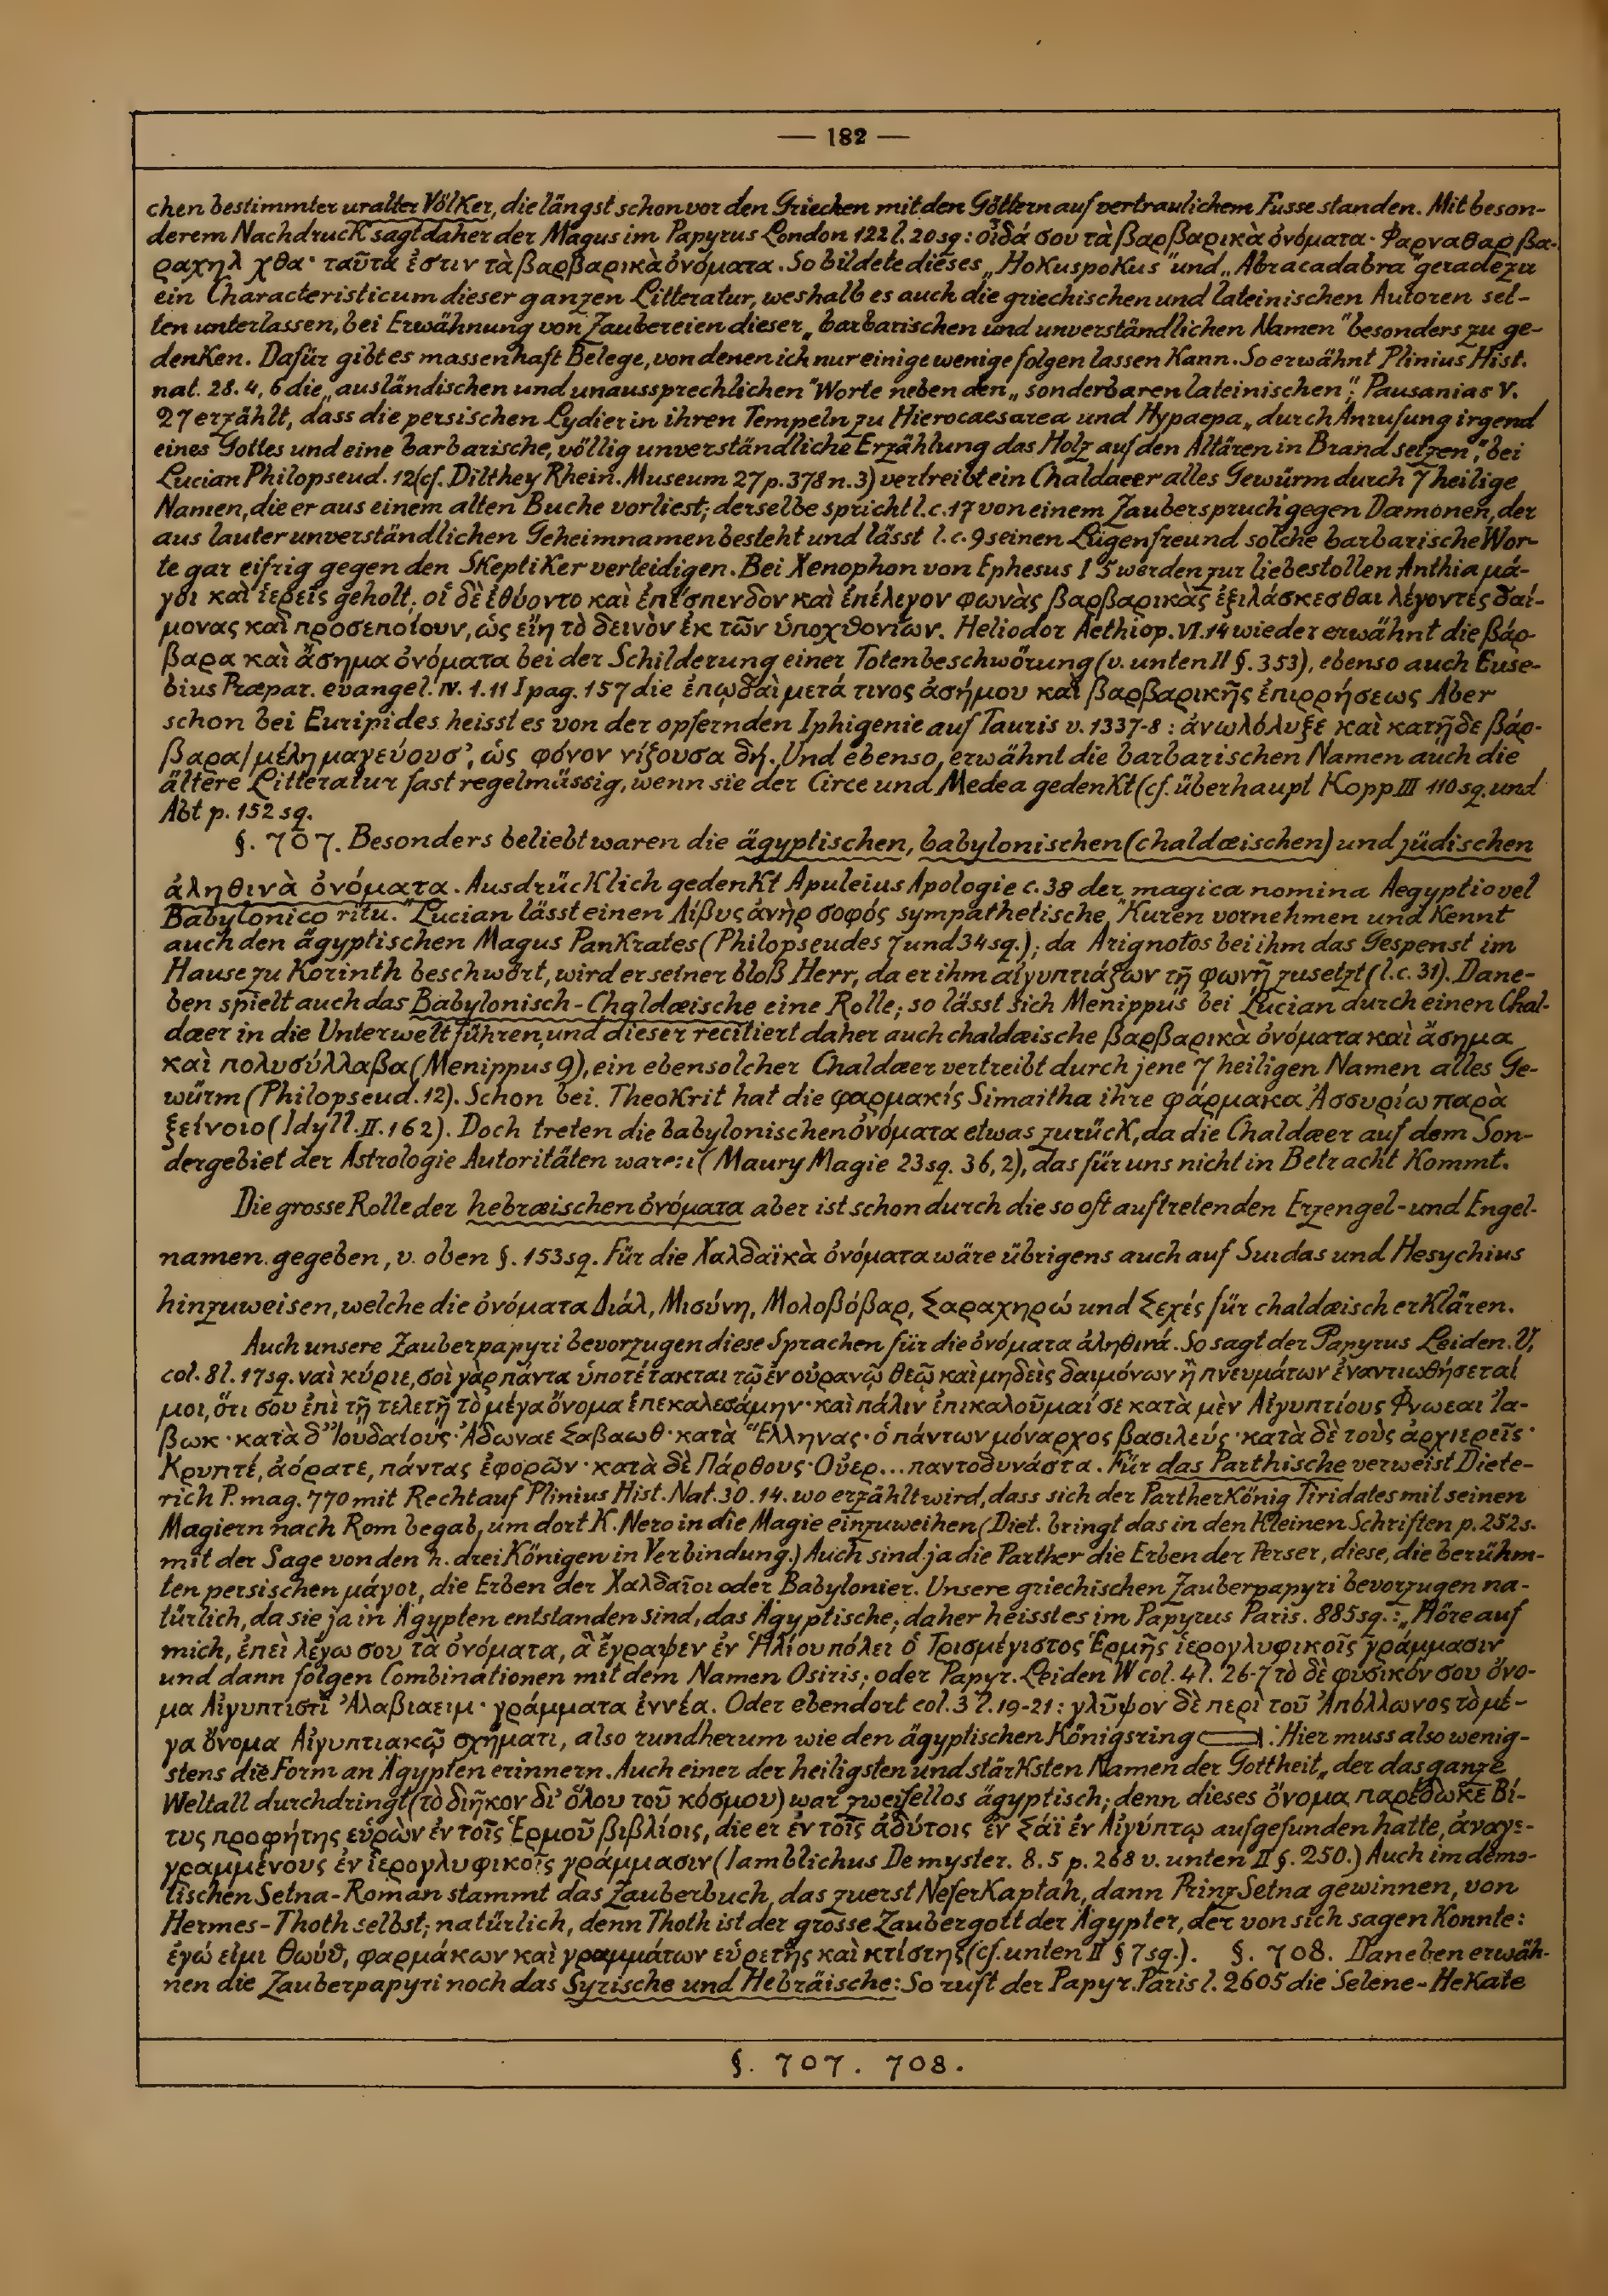 — 182 —
chen bestimmter uralter Völker, die längst schon vor den Griechen mit den Göttern auf vertraulichem Fusse standen. Mit beson-
derem Nachdruck sagt daher der Magus im Papyrus London 122 l. 20 sq: οἶδά σου τὰ βαρβαρικὰ ὀνόματα· Φαρναθαρ βα-
ραχηλ χθα· ταῦτά ἐστιν τὰ βαρβαρικὰ ὀνόματα. So bildete dieses „Hokuspokus" und „Abracadabra" geradezu
ein Characteristicum dieser ganzen Litteratur, weshalb es auch die griechischen und lateinischen Autoren sel-
ten unterlassen, bei Erwähnung von Zaubereien dieser „barbarischen und unverständlichen Namen" besonders zu ge-
denken. Dafür gibt es massenhaft Belege, von denen ich nur einige wenige folgen lassen kann. So erwähnt Plinius Hist.
nat. 28. 4, 6 die „ausländischen und unaussprechlichen" Worte neben den „sonderbaren lateinischen"; Pausanias V.
27 erzählt, dass die persischen Lydier in ihren Tempeln zu Hierocaesarea und Hypaepa „durch Anrufung irgend
eines Gottes und eine barbarische, völlig unverständliche Erzählung das Holz auf den Altären in Brand setzen", bei
Lucian Philopseud. 12 (cf. Dilthey Rhein. Museum 27 p. 378 n. 3) vertreibt ein Chaldaeer alles Gewürm durch 7 heilige
Namen, die er aus einem alten Buche vorliest; derselbe spricht l. c. 17 von einem Zauberspruch gegen Dæmonen, der
aus lauter unverständlichen Geheimnamen besteht und lässt l. c. 9 seinen Lügenfreund solche barbarische Wor-
te gar eifrig gegen den Skeptiker verteidigen. Bei Xenophon von Ephesus I 5 werden zur liebestollen Anthia μά-
γοι καὶ ἱερεῖς geholt; οἱ δὲ ἐθύοντο καὶ ἐπέσπενδον καὶ ἐπέλεγον φωνὰς βαρβαρικὰς ἐξιλάσκεσθαι λέγοντες δαί-
μονας καὶ προσεποίουν, ὡς εἴη τὸ δεινὸν ἐκ τῶν ὑποχθονίων. Heliodor Aethiop. VI. 14 wieder erwähnt die βάρ-
βαρα καὶ ἄσημα ὀνόματα bei der Schilderung einer Totenbeschwörung (v. unten II §. 353), ebenso auch Euse-
bius Præpar. evangel. IV. 1. 11 I pag. 157 die ἐπῳδαὶ μετά τινος ἀσήμου καὶ βαρβαρικῆς ἐπιρρήσεως Aber
schon bei Euripides heisst es von der opfernden Iphigenie auf Tauris v. 1337-8: ἀνωλόλυξε καὶ κατῇδε βάρ-
βαρα/μέλη μαγεύουσ', ὡς φόνον νίζουσα δή. Und ebenso erwähnt die barbarischen Namen auch die
ältere Litteratur fast regelmässig, wenn sie der Circe und Medea gedenkt (cf. überhaupt Kopp III 110 sq. und
Abt p. 152 sq.
§. 707. Besonders beliebt waren die ägyptischen, babylonischen (chaldæischen) und jüdischen
ἀληθινὰ ὀνόματα. Ausdrücklich gedenkt Apuleius Apologie c. 38 der „magica nomina Aegyptio vel
Babylonico ritu." Lucian lässt einen Λίβυς ἀνὴρ σοφός sympathetische Kuren vornehmen und kennt
auch den ägyptischen Magus Pankrates (Philopseudes 7 und 34 sq.); da Arignotos bei ihm das Gespenst im
Hause zu Korinth beschwört, wird er seiner bloß Herr, da er ihm αἰγυπτιάζων τῇ φωνῇ zusetzt (l. c. 31). Dane-
ben spielt auch das Babylonisch-Chaldæische eine Rolle; so lässt sich Menippus bei Lucian durch einen Chal-
dæer in die Unterwelt führen, und dieser recitiert daher auch chaldæische βαρβαρικὰ ὀνόματα καὶ ἄσημα
καὶ πολυσύλλαβα (Menippus 9), ein ebensolcher Chaldæer vertreibt durch jene 7 heiligen Namen alles Ge-
würm (Philopseud. 12). Schon bei Theokrit hat die φαρμακίς Simaitha ihre φάρμακα Ἀσσυρίω παρὰ
ξείνοιο (Idyll. II. 162). Doch treten die babylonischen ὀνόματα etwas zurück, da die Chaldæer auf dem Son-
dergebiet der Astrologie Autoritäten waren (Maury Magie 23 sq. 36, 2), das für uns nicht in Betracht kommt.
Die grosse Rolle der hebræischen ὀνόματα aber ist schon durch die so oft auftretenden Erzengel- und Engel-
namen gegeben, v. oben §. 153 sq. Für die Χαλδαϊκὰ ὀνόματα wäre übrigens auch auf Suidas und Hesychius
hinzuweisen, welche die ὀνόματα Διάλ, Μισύνη, Μολοβόβαρ, Σαραχηρώ und Σεχές für chaldæisch erklären.
Auch unsere Zauberpapyri bevorzugen diese Sprachen für die ὀνόματα ἀληθινά. So sagt der Papyrus Leiden. V,
col. 8 l. 17 sq. ναὶ κύριε, σοὶ γὰρ πάντα ὑποτέτακται τῷ ἐν οὐρανῷ θεῷ καὶ μηδεὶς δαιμόνων ἢ πνευμάτων ἐναντιωθήσεταί
μοι, ὅτι σου ἐπὶ τῇ τελετῇ τὸ μέγα ὄνομα ἐπεκαλεσάμην· καὶ πάλιν ἐπικαλοῦμαί σε κατὰ μὲν Αἰγυπτίους Φνωεαι Ἰα-
βωκ· κατὰ δ' Ἰουδαίους· Ἀδωναε Σαβαωθ· κατὰ Ἕλληνας· ὁ πάντων μόναρχος βασιλεύς· κατὰ δὲ τοὺς ἀρχιερεῖς·
Κρυπτέ, ἀόρατε, πάντας ἐφορῶν· κατὰ δὲ Πάρθους· Οὐερ... παντοδυνάστα. Für das Parthische verweist Diete-
rich P. mag. 770 mit Recht auf Plinius Hist. Nat. 30. 14. wo erzählt wird, dass sich der Partherkönig Tiridates mit seinen
Magiern nach Rom begab, um dort K. Nero in die Magie einzuweihen (Diet. bringt das in den Kleinen Schriften p. 252 s.
mit der Sage von den h. drei Königen in Verbindung.) Auch sind ja die Parther die Erben der Perser, diese, die berühm-
ten persischen μάγοι, die Erben der Χαλδαῖοι oder Babylonier. Unsere griechischen Zauberpapyri bevorzugen na-
türlich, da sie ja in Ägypten entstanden sind, das Ägyptische; daher heisst es im Papyrus Paris. 885 sq.: „Höre auf
mich, ἐπεὶ λέγω σου τὰ ὀνόματα, ἃ ἔγραψεν ἐν Ἡλίουπόλει ὁ Τρισμέγιστος Ἑρμῆς ἱερογλυφικοῖς γράμμασιν
und dann folgen Combinationen mit dem Namen Osiris; oder Papyr. Leiden W col. 4 l. 26-7 τὸ δὲ φυσικόν σου ὄνο-
μα Αἰγυπτιστὶ Ἀλαβιαειμ· γράμματα ἐννέα. Oder ebendort col. 3 l. 19-21: γλῦψον δὲ περὶ τοῦ Ἀπόλλωνος τὸ μέ-
γα ὄνομα Αἰγυπτιακῷ σχήματι, also rundherum wie den ägyptischen Königsring. Hier muss also wenig-
stens die Form an Ägypten erinnern. Auch einer der heiligsten und stärksten Namen der Gottheit „der das ganze
Weltall durchdringt (τὸ διῆκον δι' ὅλου τοῦ κόσμου) war zweifellos ägyptisch; denn dieses ὄνομα παρέδωκε Βί-
τυς προφήτης εὑρὼν ἐν τοῖς Ἑρμοῦ βιβλίοις, die er ἐν τοῖς ἀδύτοις ἐν Σάϊ ἐν Αἰγύπτῳ aufgefunden hatte, ἀναγε-
γραμμένους ἐν ἱερογλυφικοῖς γράμμασιν (Iamblichus De myster. 8. 5 p. 268 v. unten II §. 250.) Auch im demo-
tischen Setna-Roman stammt das Zauberbuch, das zuerst Neferkaptah, dann Prinz Setna gewinnen, von
Hermes-Thoth selbst; natürlich, denn Thoth ist der grosse Zaubergott der Ägypter, der von sich sagen konnte:
ἐγώ εἰμι Θωύθ, φαρμάκων καὶ γραμμάτων εὑρετὴς καὶ κτίστης (cf. unten II § 7 sq.). §. 708. Daneben erwäh-
nen die Zauberpapyri noch das Syrische und Hebräische: So ruft der Papyr. Paris l. 2605 die Selene-Hekate
§. 707. 708.